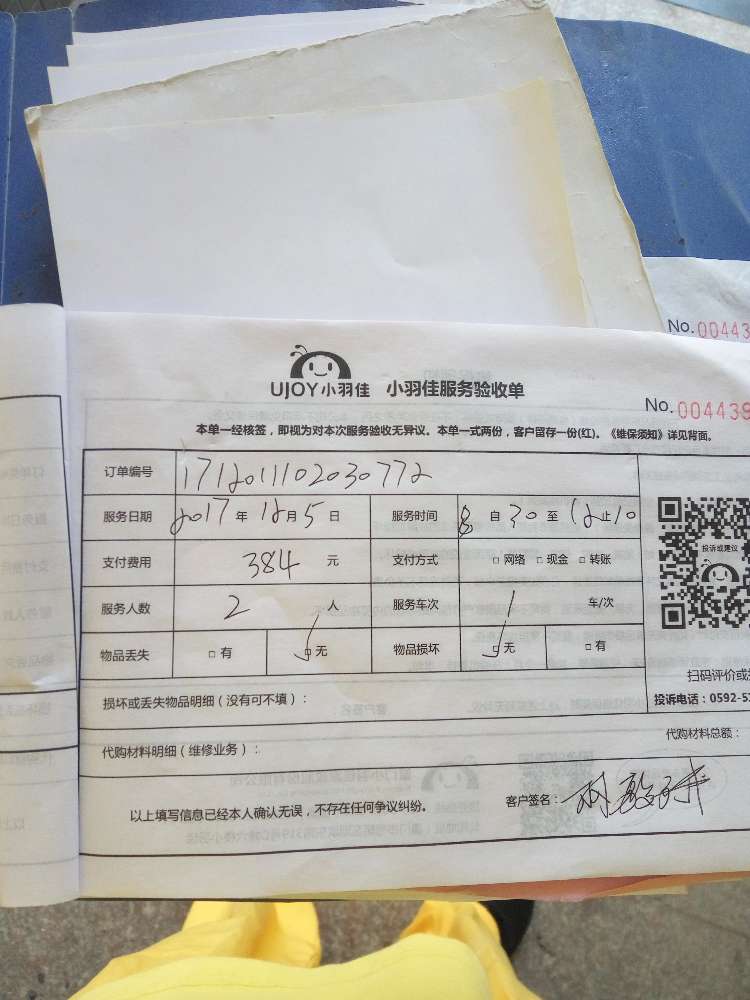 No.004439
UJOY小羽佳 小羽佳服务验收单
No.004438
本单一经核签,即视为对本次服务验收无异议。本单一式两份,客户留存一份(红)。《维保须知》详见背面。
订单编号 171201110203077２
服务日期 2017年12月5日 服务时间 8自30至12止10
支付费用 384元 支付方式 □网络 □现金 □转账
投诉或建议
服务人数 2人 服务车次 1车/次
物品丢失 □有 □无 物品损坏 □无 □有
扫码评价或
损坏或丢失物品明细(没有可不填):
投诉电话:0592-5
代购材料明细(维修业务): 代购材料总额:
以上填写信息已经本人确认无误,不存在任何争议纠纷。 客户签名: